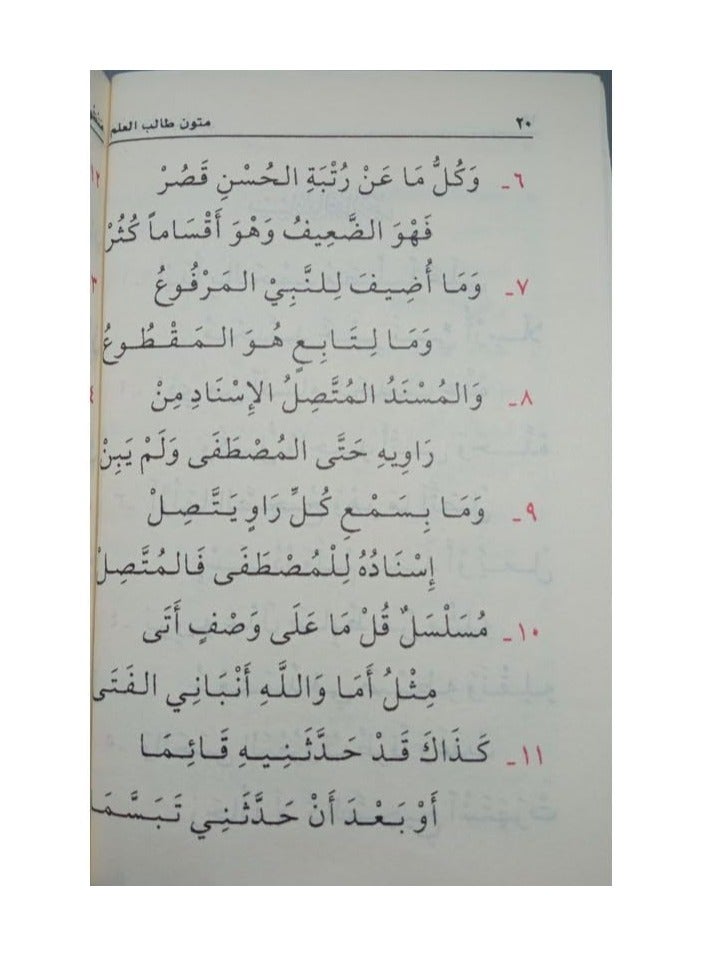 ٢٠ متون طالب العلم
٦- وَكُلُّ مَا عَنْ رُتْبَةِ الحُسْنِ قَصُرْ
فَهْوَ الضَّعِيفُ وَهْوَ أَقْسَاماً كُثُرْ
٧- وَمَا أُضِيفَ لِلنَّبِيْ المَرْفُوعُ
وَمَا لِتَابِعٍ هُوَ المَقْطُوعُ
٨- وَالمُسْنَدُ المُتَّصِلُ الإِسْنَادِ مِنْ
رَاوِيهِ حَتَّى المُصْطَفَى وَلَمْ يَبِنْ
٩- وَمَا بِسَمْعِ كُلِّ رَاوٍ يَتَّصِلْ
إِسْنَادُهُ لِلْمُصْطَفَى فَالمُتَّصِلْ
١٠- مُسَلْسَلٌ قُلْ مَا عَلَى وَصْفٍ أَتَى
مِثْلُ أَمَا وَاللَّهِ أَنْبَانِي الفَتَى
١١- كَذَاكَ قَدْ حَدَّثَنِيهِ قَائِمَا
أَوْ بَعْدَ أَنْ حَدَّثَنِي تَبَسَّمَا